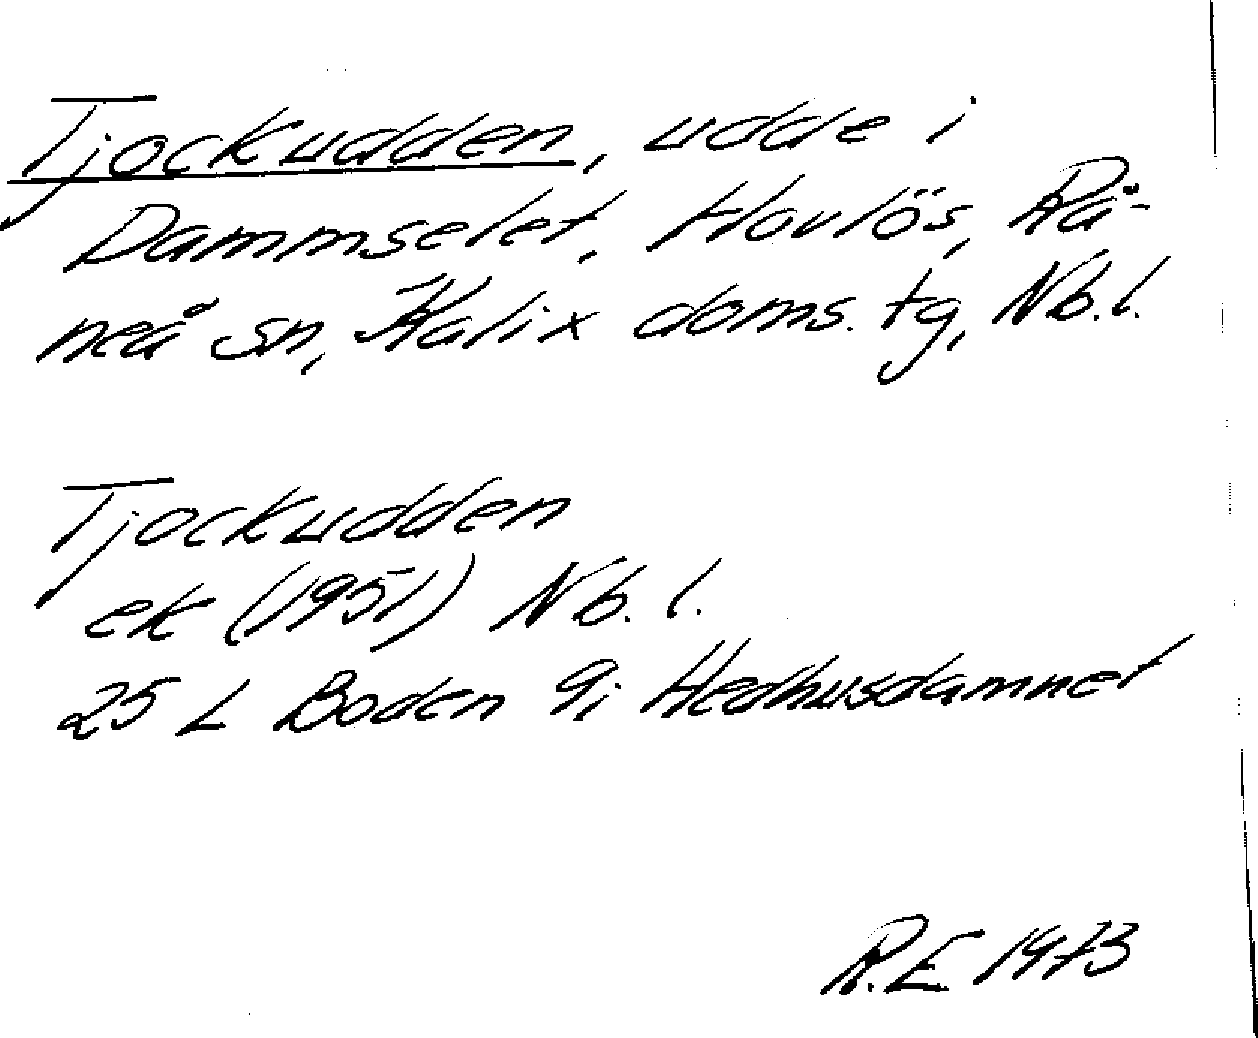 Tjockudden, udde i
Dammselet, Hovlös, Rå-
neå sn, Kalix doms. tg, Nb. l.
Tjockudden
ek (1951) Nb. l.
25 L Boden 9i Hedhusdamnet
R.E 1973